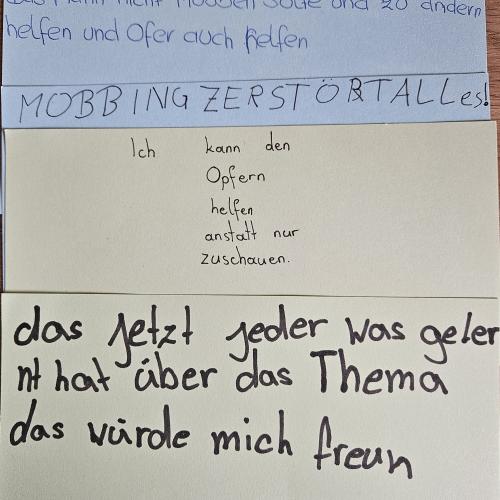 das Mann nicht Mobben sollte und zu andern
helfen und Ofer auch helfen
MOBBING ZERSTÖRT ALLes!
Ich kann den
Opfern
helfen
anstatt nur
zuschauen.
das jetzt jeder was geler
nt hat über das Thema
das würde mich freun